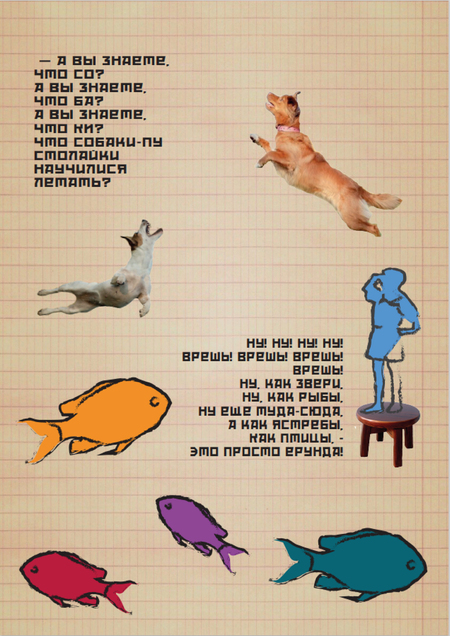 — А ВЫ ЗНАЕТЕ,
ЧТО СО?
А ВЫ ЗНАЕТЕ,
ЧТО БА?
А ВЫ ЗНАЕТЕ,
ЧТО КИ?
ЧТО СОБАКИ-ПУ
СТОЛАЙКИ
НАУЧИЛИСЯ
ЛЕТАТЬ?
НУ! НУ! НУ! НУ!
ВРЕШЬ! ВРЕШЬ! ВРЕШЬ!
ВРЕШЬ!
НУ, КАК ЗВЕРИ,
НУ, КАК РЫБЫ,
НУ ЕЩЕ ТУДА-СЮДА,
А КАК ЯСТРЕБЫ,
КАК ПТИЦЫ, -
ЭТО ПРОСТО ЕРУНДА!